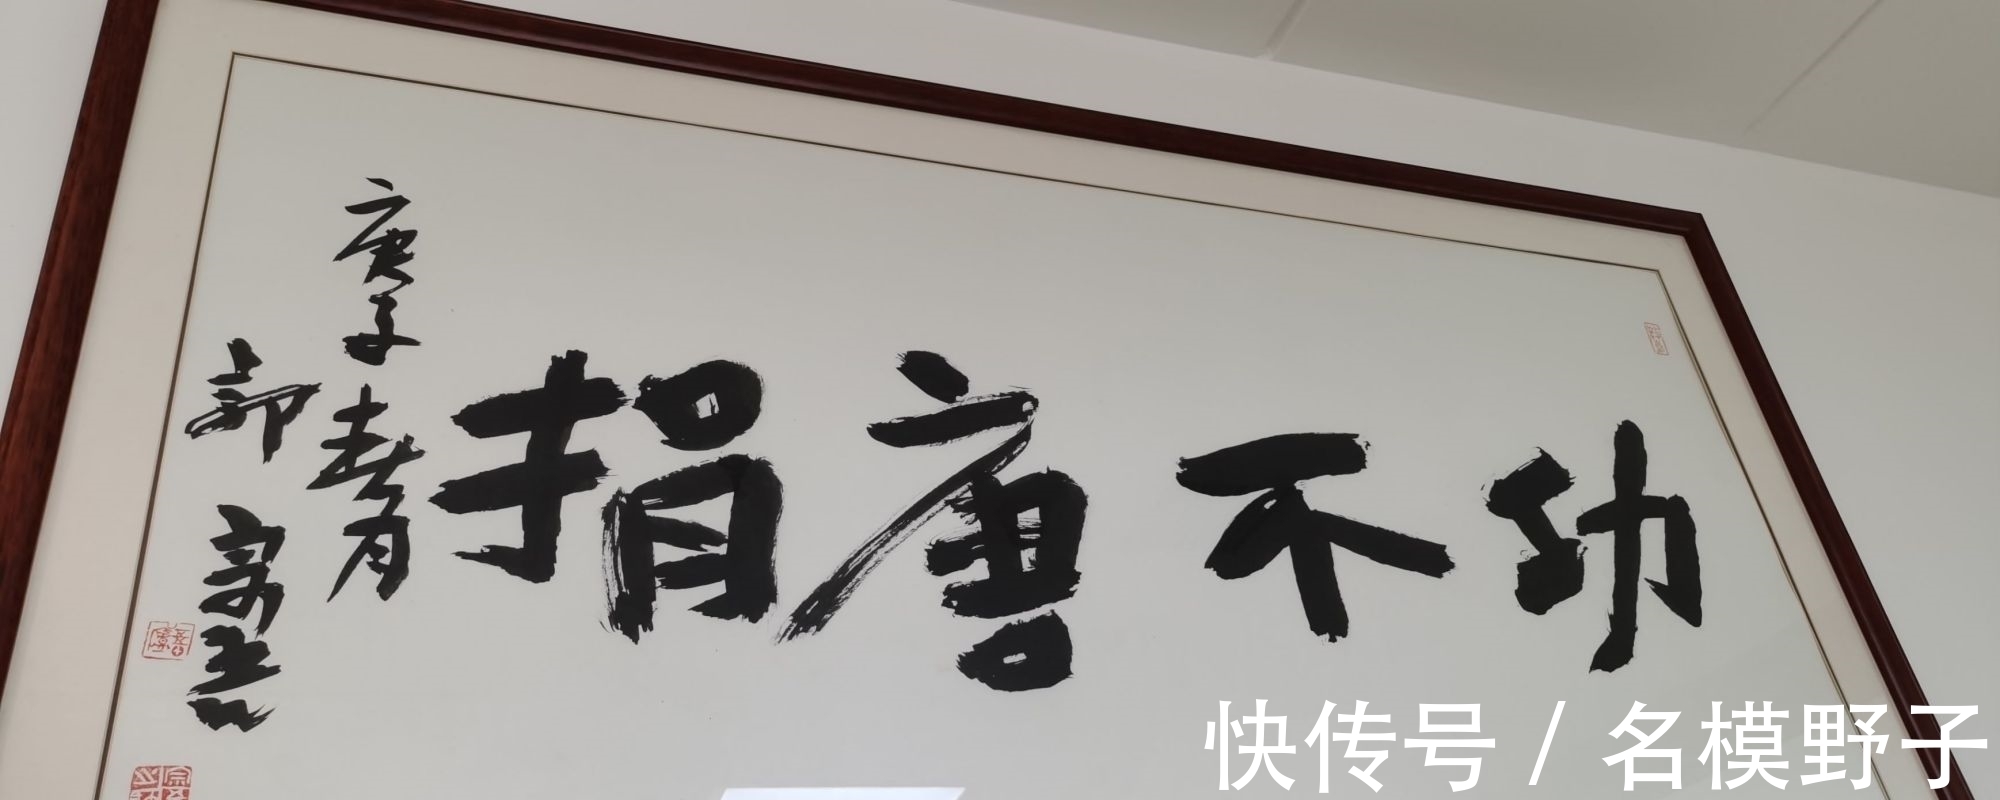 幼不唐捐
庚子春月
郭
快传号 / 名模野子